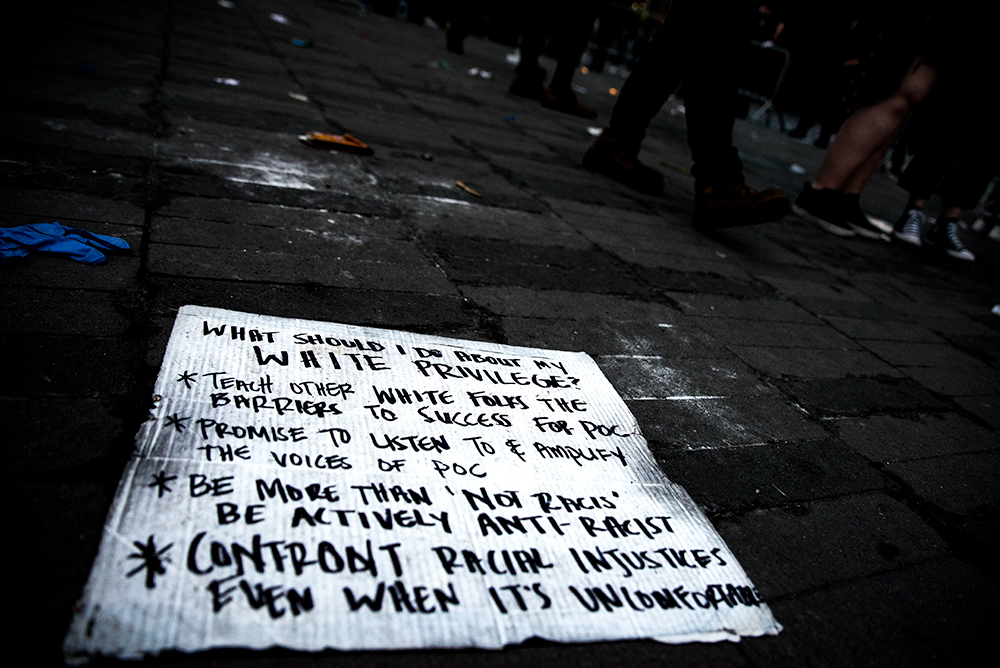 WHAT SHOULD I DO ABOUT MY
WHITE PRIVILEGE?
* TEACH OTHER WHITE FOLKS THE
BARRIERS TO SUCCESS FOR POC
* PROMISE TO LISTEN TO & AMPLIFY
THE VOICES OF POC
* BE MORE THAN 'NOT RACIS'
BE ACTIVELY ANTI-RACIST
* CONFRONT RACIAL INJUSTICES
EVEN WHEN IT'S UNCOMFORTABLE